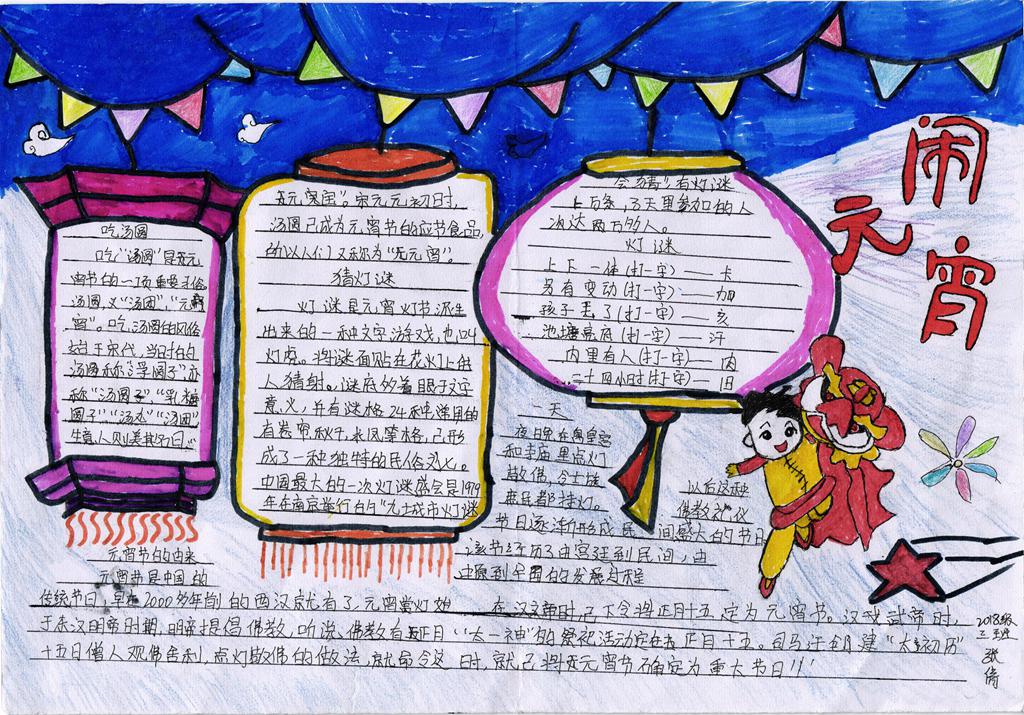 闹元宵
吃汤圆
吃"汤圆"是元
宵节的一项重要习俗
汤圆，又"汤团"，"元
宵"。吃汤圆的风俗
始于宋代，当时的
汤圆称"浮圆子"亦
称"汤圆子""乳糖
圆子""汤水""汤团"
生意人则美其名曰。
"元宵宝"。宋元元初日时，
汤圆已成为元宵节的应节食品，
所以人们又称为"元宵"。
猜灯谜
灯谜是元宵灯节派生
出来的一种文字游戏，也叫
灯虎。将谜面贴在花灯上供
人猜射。谜底的着眼于文字
意义，并有谜格24种，常用的
有卷帘秋千，求凤等格，已形
成了一种独特的民俗文化。
中国最大的一次灯谜盛会是1979
年在南京举行的"九士城市灯谜
会猜"有灯谜
上万条，3天里参加的人
次达两万多人。
灯谜
上下一体（打一字）——卡
另有变动（打一字）——加
孩子丢了（打一字）——亥
池塘亮底（打一字）——汗
内里有人（打一字）——肉
二十四小时（打一字）——旧
元宵节的由来
元宵节是中国的
传统节日，早在2000多年前的西汉就有了，元宵赏灯始
于东汉明帝时期，明帝提倡佛教，听说佛教有正月
十五日僧人观佛舍利，点灯敬佛的做法，就命令这
一天
夜晚在皇宫
和寺庙里点灯
敬佛，令士族
庶民都挂灯。
以后这种
佛教礼仪
节日逐渐形成民间盛大的节日
该节经历了由宫廷到民间，由
中原到全国的发展过程
在汉文帝时，已下令将正月十五定为元宵节。汉武武帝时，
"太一神"的祭祀活动定在正月十五。司马迁创建"太初历"
时，就已将元宵节确定为重大节日！！！
2018级
三班
张倩